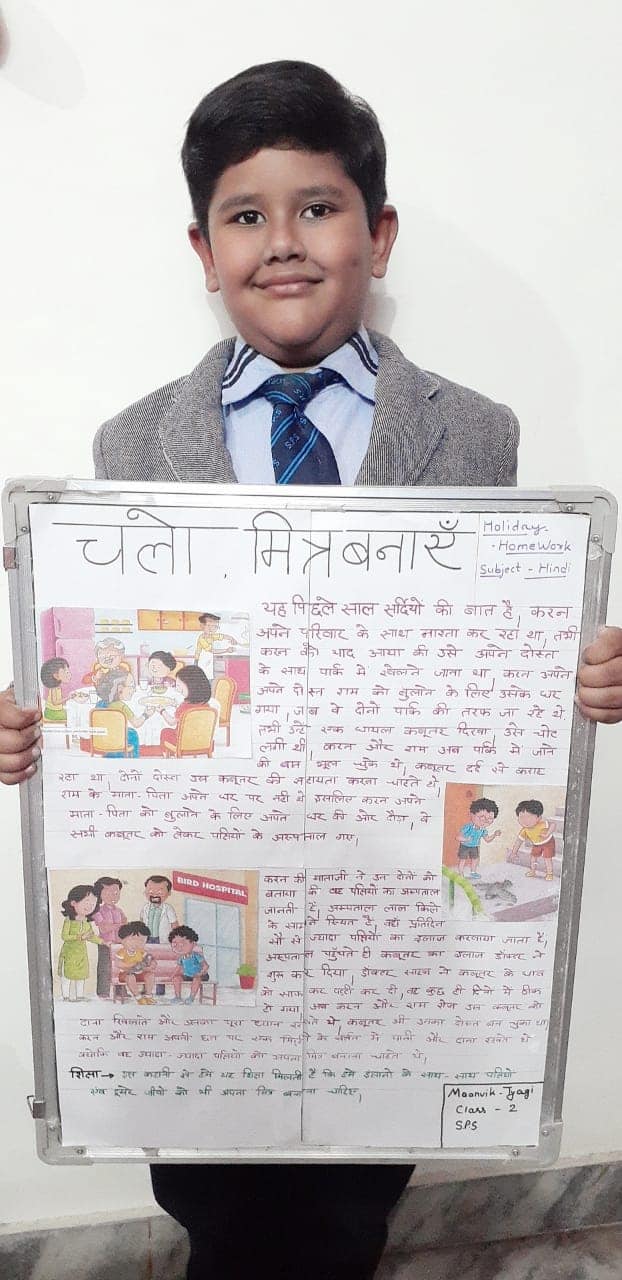 चलो मित्र बनाएँ
Holiday
HomeWork
Subject - Hindi
यह पिछले साल सर्दियों की बात है, करन
अपने परिवार के साथ नाश्ता कर रहा था, तभी
करन को याद आया की उसे अपने दोस्त
के साथ पार्क में खेलने जाना था, करन अपने
अपने दोस्त राम को बुलाने के लिए उसके घर
गया, जब वे दोनो पार्क की तरफ जा रहे थे
तभी उन्हें एक घायल कबूतर दिखा, उसे चोट
लगी थी, करन और राम अब पार्क में जाने
की बात भूल चुके थे, कबूतर दर्द से कराह
रहा था, दोनों दोस्त उस कबूतर की सहायता करना चाहते थे,
राम के माता-पिता अपने घर पर नही थे इसलिए करन अपने
माता-पिता को बुलाने के लिए अपने घर की ओर दौड़ा, वे
सभी कबूतर को लेकर पक्षियों के अस्पताल गए,
BIRD HOSPITAL
करन की माताजी ने उन दोनों को
बताया की वह पक्षियों का अस्पताल
जानती हैं, अस्पताल लाल किले
के सामने स्थित है, वहाँ प्रतिदिन
सौ से ज्यादा पक्षियों का इलाज करवाया जाता है,
अस्पताल पहुंचते ही कबूतर का इलाज डॉक्टर ने
शुरू कर दिया, डॉक्टर साहब ने कबूतर के घाव
को साफ कर पट्टी कर दी, वह कुछ ही दिनों में ठीक
हो गया, अब करन और राम रोज उस कबूतर को
दाना खिलाते और उसका पूरा ध्यान रखते थे, कबूतर भी उनका दोस्त बन चुका था
करन और राम अपनी छत पर एक मिट्टी के बर्तन में पानी और दाना रखते थे
क्योंकि वह ज्यादा-ज्यादा पक्षियों को अपना मित्र बनाना चाहते थे,
शिक्षा → इस कहानी से हमें यह शिक्षा मिलती है कि हमें इंसानो के साथ-साथ पक्षियों
एवं दूसरे जीवों को भी अपना मित्र बनाना चाहिए,
Maanvik Tyagi
Class - 2
SPS